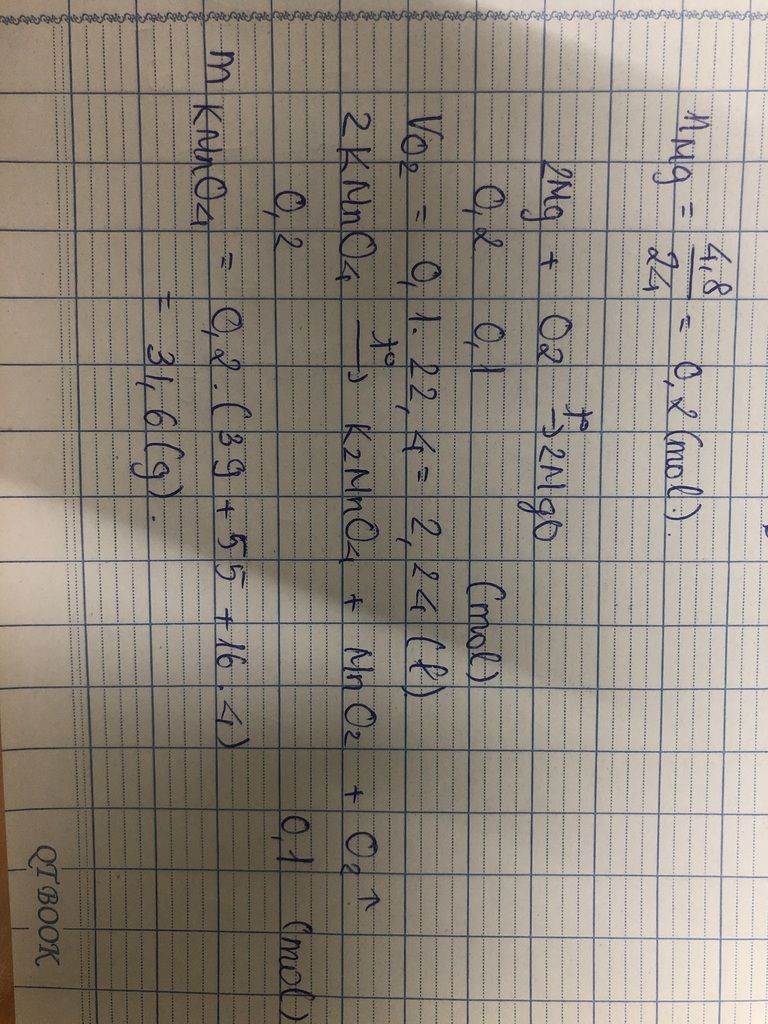 nMg = 4,8/24 = 0,2 (mol).
2Mg + O2 t° → 2MgO
0,2 0,1 (mol)
VO2 = 0,1.22,4 = 2,24 (l)
2KMnO4 t° → K2MnO4 + MnO2 + O2↑
0,2 0,1 (mol)
mKMnO4 = 0,2.(39+55+16.4)
= 31,6 (g).
QTBOOK